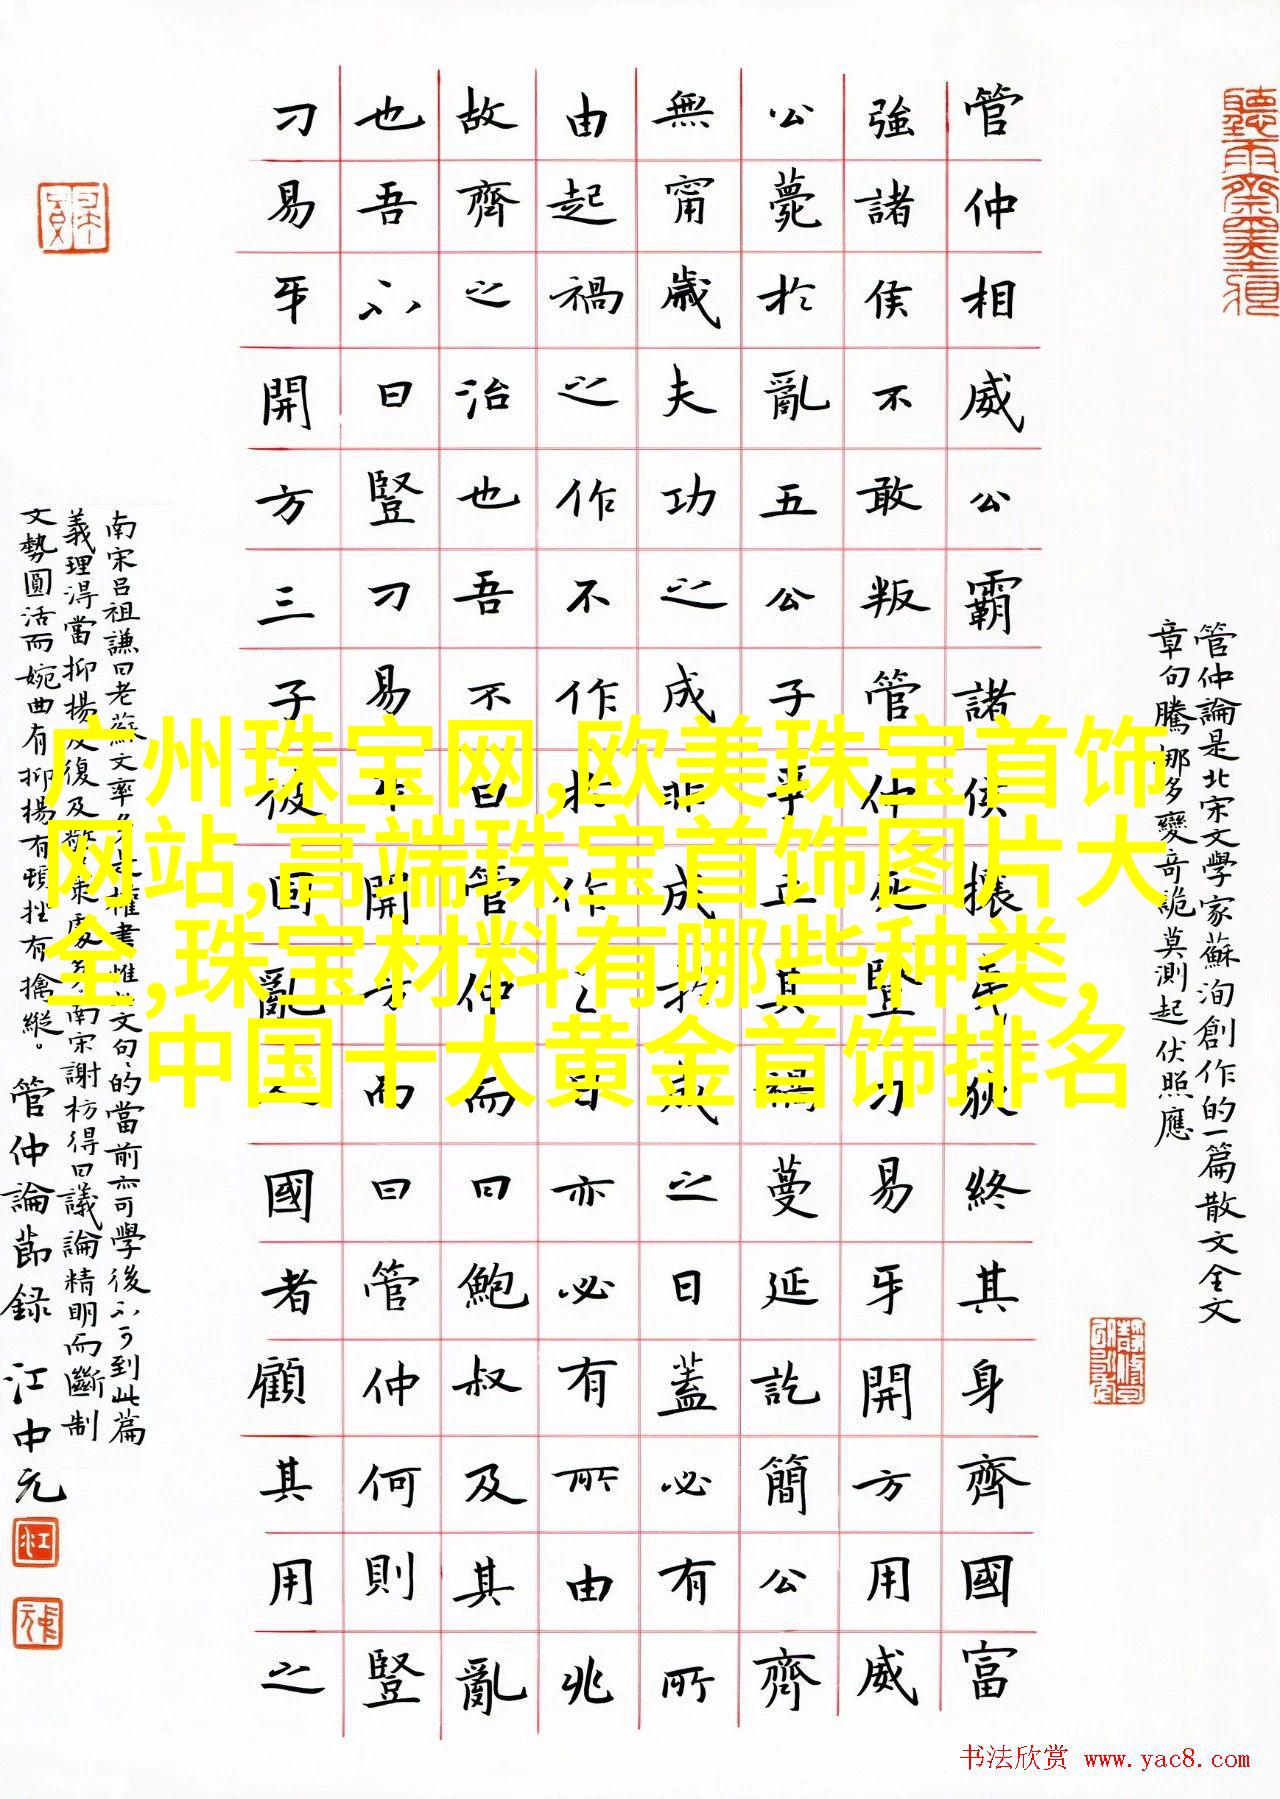 管仲論是北宋文學家蘇洵創作的一篇散文全文
章句騰挪多變奇詭莫測起伏照應
管仲相威公霸諸侯攘夷狄終其身齊國富
強諸侯不敢叛管仲死豎刁易牙開方用威
公薨於亂五公子爭立其禍蔓延訖簡公齊
無甯歲夫功之成非成於成之日蓋必有所
由起禍之作不作於作之日亦必有所由兆
故齊之治也吾不曰管仲而曰鮑叔及其亂
也吾不曰豎刁易牙開方而曰管仲何則豎
刁易牙開方三子彼固亂人國者顧其用之
南宋呂祖謙曰老蘇文率多是權書惟此文句句的當前亦可學後不可到此篇
義理淂當抑揚反復及警策處多南宋謝枋得曰議論精明而斷制
文勢圓活而婉曲有抑揚有頓挫有擒縱。管仲論節錄 江中元
广州珠宝网,欧美珠宝首饰
网站,高端珠宝首饰图片大
全,珠宝材料有哪些种类,
中国十大黄金首饰排名
书法欣赏 www.yac8.com